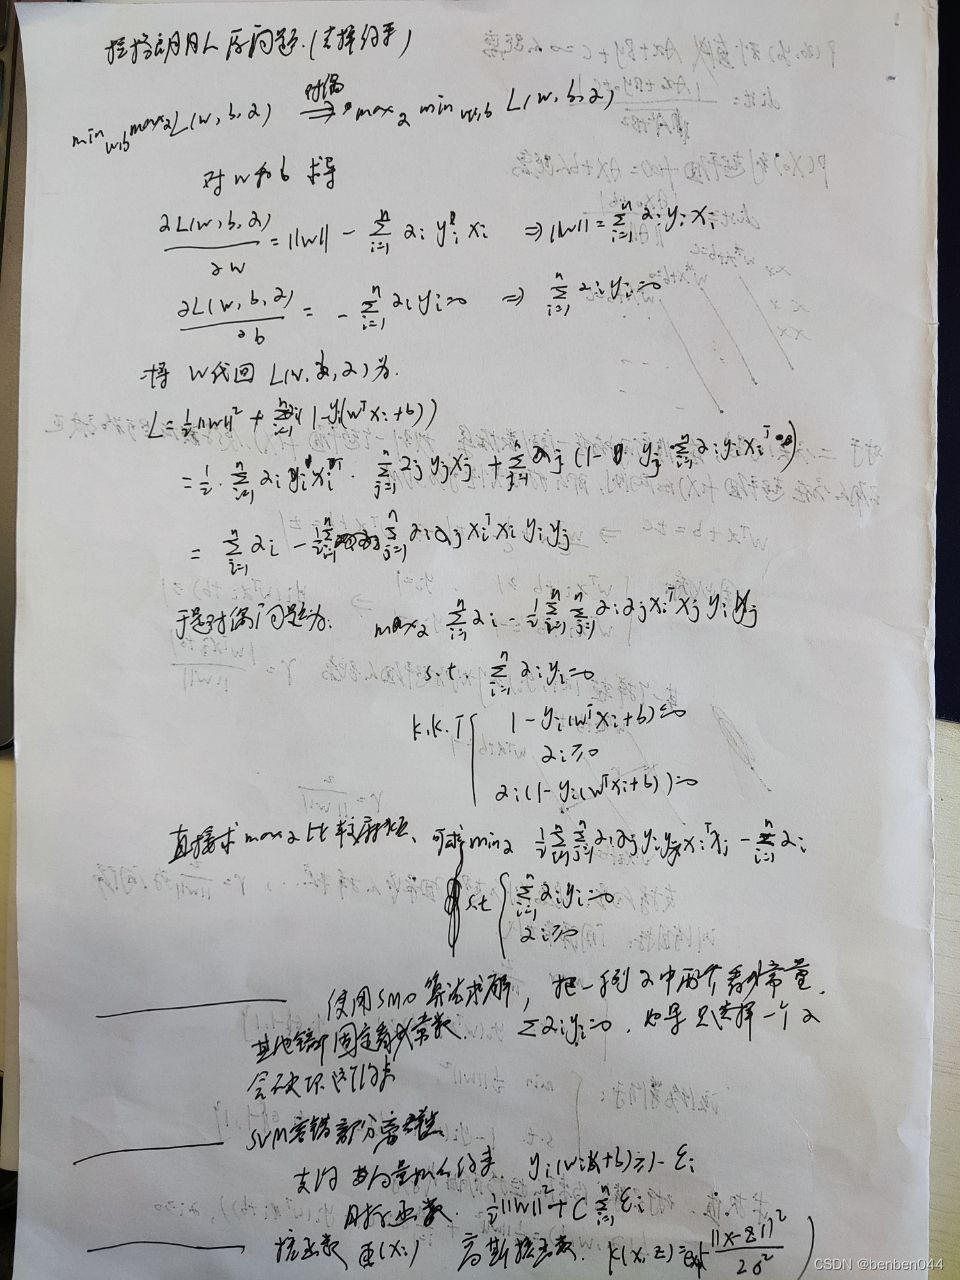 拉格朗日原问题.(支持约束)
min w,b max α L(w, b, α) 对偶 ⇒ max α min w,b L(w, b, α)
对 w 和 b 求导
∂L(w, b, α)/∂w = ||w|| - Σ_{i=1}^{n} α_i y_i x_i ⇒ ||w|| = Σ_{i=1}^{n} α_i y_i x_i
∂L(w, b, α)/∂b = - Σ_{i=1}^{n} α_i y_i = 0 ⇒ Σ_{i=1}^{n} α_i y_i = 0
将 W代回 L(w, b, α) 为.
L = ½||w||² + Σ α_i (1-y_i(w^T x_i + b))
= ½ · Σ_{i=1}^{n} α_i y_i x_i^T · Σ_{j=1}^{n} α_j y_j x_j + Σ α_j (1 - y_j Σ_{i=1}^{n} α_i y_i x_i^T)
= Σ_{i=1}^{n} α_i - ½ Σ_{i=1}^{n} Σ_{j=1}^{n} α_i α_j x_i^T x_i y_i y_j
于是对偶问题为: max α Σ_{i=1}^{n} α_i - ½ Σ_{i=1}^{n} Σ_{j=1}^{n} α_i α_j x_i^T x_j y_i y_j
s.t. Σ_{i=1}^{n} α_i y_i = 0
K.K.T { 1 - y_i(w^T x_i + b) ≤ 0
α_i ≥ 0
α_i(1 - y_i(w^T x_i + b)) = 0
直接求 max α 比较麻烦、可求 min α ½ Σ_{i=1}^{n} Σ_{j=1}^{n} α_i α_j y_i y_j x_i^T x_j - Σ_{i=1}^{n} α_i
s.t { Σ_{i=1}^{n} α_i y_i = 0
α_i ≥ 0
使用SMO算法求解, 把一系列 α 中两个看成常量,
其他 固定看成常数. Σα_i y_i = 0, 如果只选择一个 α
会破坏这个约束
SVM 容错部分
支持 向量 约束 y_i(w x_i + b) ≥ 1 - ε_i
目标函数. ½||w||² + C Σ_{i=1}^{n} ε_i
核函数 Φ(x_i) 高斯核函数. K(x, z) = exp( ||x-z||²/2σ² )
CSDN @benben044